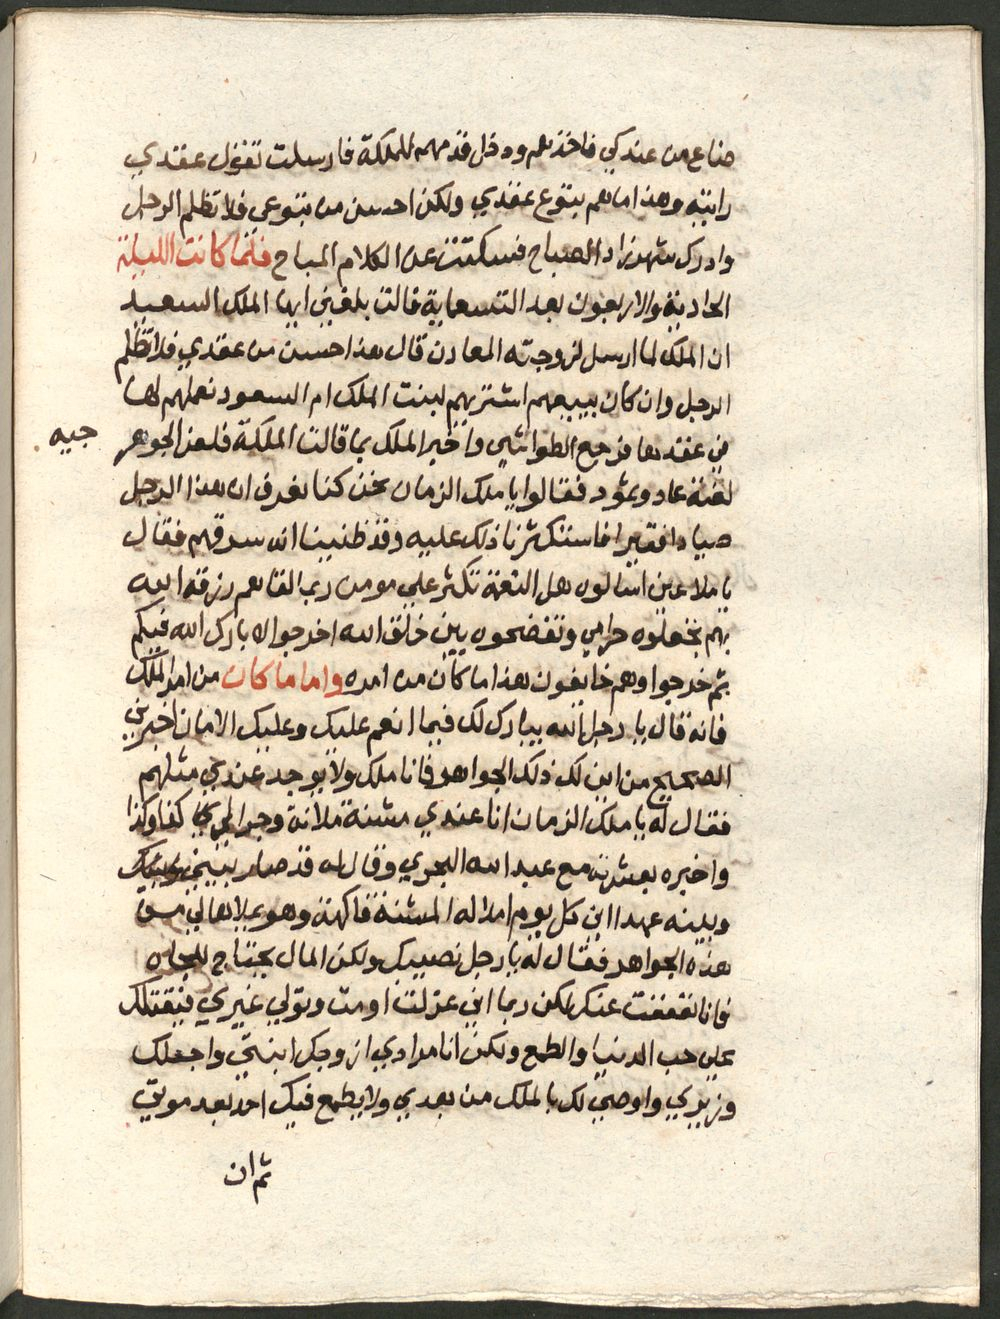 ضاع من عندكي فاخذهم ودخل قدمهم للملكة فارسلت تقول عقدي
رايته وهذا ما هم بتوع عقدي ولكن احسن من بتوعي فلا تظلم الرجل
وادرك شهرزاد الصباح فسكتت عن الكلام المباح فلما كانت الليلة
الحادية والاربعون بعد التسعماية قالت بلغني ايها الملك السعيد
ان الملك لما ارسل لزوجته المعادن قال هذا احسن من عقدي فلا تظلم
الرجل وان كان يبيعهم اشتريهم لبنت الملك ام السعود نعملهم لها
في عقدها فرجع الطواشي واخبر الملك بما قالت الملكة فلعن الجوهر
جيه
لعنة عاد وثمود فقالوا يا ملك الزمان نحن كنا نعرف ان هذا الرجل
صيادا فقيرا فاستكثرنا ذلك عليه وقد ظنينا انه سرقهم فقال
يا ملاعين اسالوه هل النعمة تكثر علي مومن ربما القاهم رزقه الله
بهم تجعلوه حرامي وتفضحوه بين خلق الله اخرجوا لا بارك الله فيكم
ثم خرجوا وهم خايفون هذا ما كان من امره واما ما كان من امر الملك
فانه قال يا رجل الله يبارك لك فيما انعم عليك وعليك الامان اخبرني
الصحيح من اين لك ذلك الجواهر فانا ملك ولا يوجد عندي مثلهم
فقال له يا ملك الزمان انا عندي مشنة ملانة وجرا لي كذا وكذا
واخبره بعشرته مع عبد الله البحري وقال له قد صار بيني
وبينه عهدا اني كل يوم املا له المشنة فاكهة وهو يملاها لي من
هذه الجواهر فقال له يا رجل نصيبك ولكن المال يحتاج للجاه
فانا عنك لكن ربما اني عزلت او مت وتولي غيري فيقتلك
علي حب الدنيا والطمع ولكن انا مرادي ازوجك ابنتي واجعلك
وزيري واوصي لك بالملك من بعدي ولا يطمع فيك احد بعد موتي
ثم ان